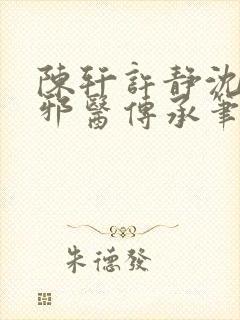 陳軒許靜沈
邪醫傳承筆
朱德發